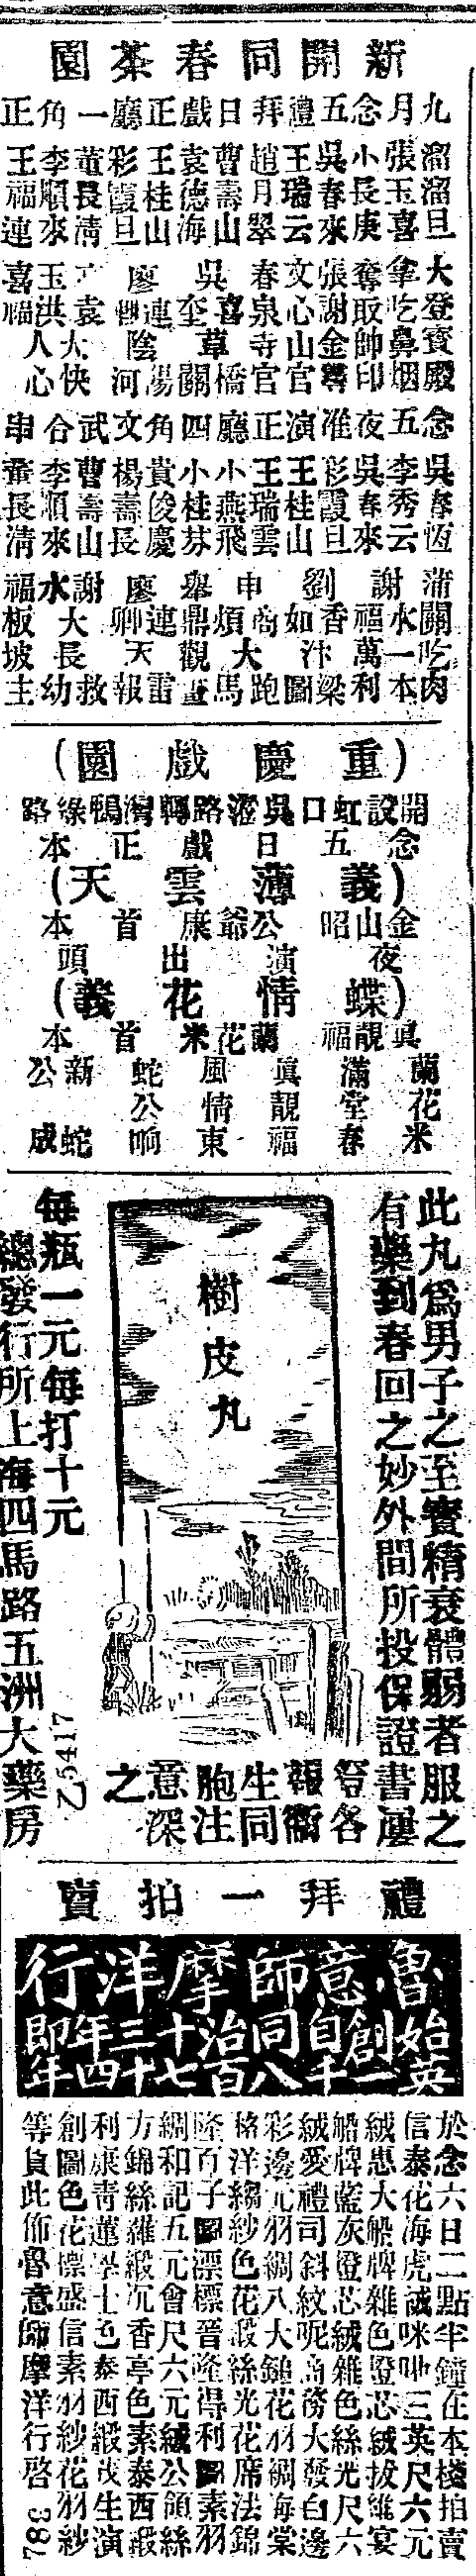 新開同春茶園
九月念五禮拜日戲正廳一角正
溜溜旦 張玉喜 小長庚 吳春來 王瑞云 趙月翠 曹壽山 袁德海 王桂山 彩霞旦 董長清 李順來 王福連
大登寶殿
拿吃鼻烟
奪取帥印
文心山官
春泉寺官
吳喜奎
草橋關
廖連卿
陰陽河
大快人心
念五夜准演正廳四角文武合串
吳春恆 李秀云 吳春來 彩霞旦 王桂山 王瑞雲 小燕飛 小桂芬 黃俊慶 楊壽長 曹壽山 李順來 董長清
蒲關吃肉
謝水福
萬一本利
劉香如
汴梁圖
申商煩
大跑馬
舉鼎觀畫
廖連卿
天雷報
謝水福
大長板坡
救幼主
(重慶戲園)
開設虹口吳淞路轉灣鴨綠路
念五日戲正本
(義薄雲天)
金山昭公爺康首本
夜演出頭
(蝶情花義)
眞靚福蘭花米首本
蘭花米
滿堂春
眞靚福
風情東
蛇公响
新蛇公咸
此丸爲男子之至寶精衰體弱者服之
有藥到春回之妙外間所投保證書屢
登各報衛生同胞注意深之
樹皮丸
每瓶一元每打十元
總發行所上海四馬路五洲大藥房
乙5417
禮拜一拍賣
魯意師摩洋行
始創自同治十三年即
英一千八百七十四年
於念六日二點半鐘在本棧拍賣
信泰花海虎絨咪吔三英尺六元
絨患大船牌雜色燈芯絨拔維宴
船牌藍灰燈芯絨雜色絲光尺六
絨愛禮司斜紋呢高蒡大發白邊
彩邊元羽綢八大鎚花羽綢海棠
格洋縐紗色花緞絲光花席法錦
隆百子圖漂標晉隆得利圖素羽
綢和記五元會尺六元絨公頒絲
方錦絲羅緞沉香亭色素泰西緞
利康青蓮學士色泰西緞茂生演
創圖色花標盛信素羽紗花羽紗
等貨此佈魯意師摩洋行啓
783